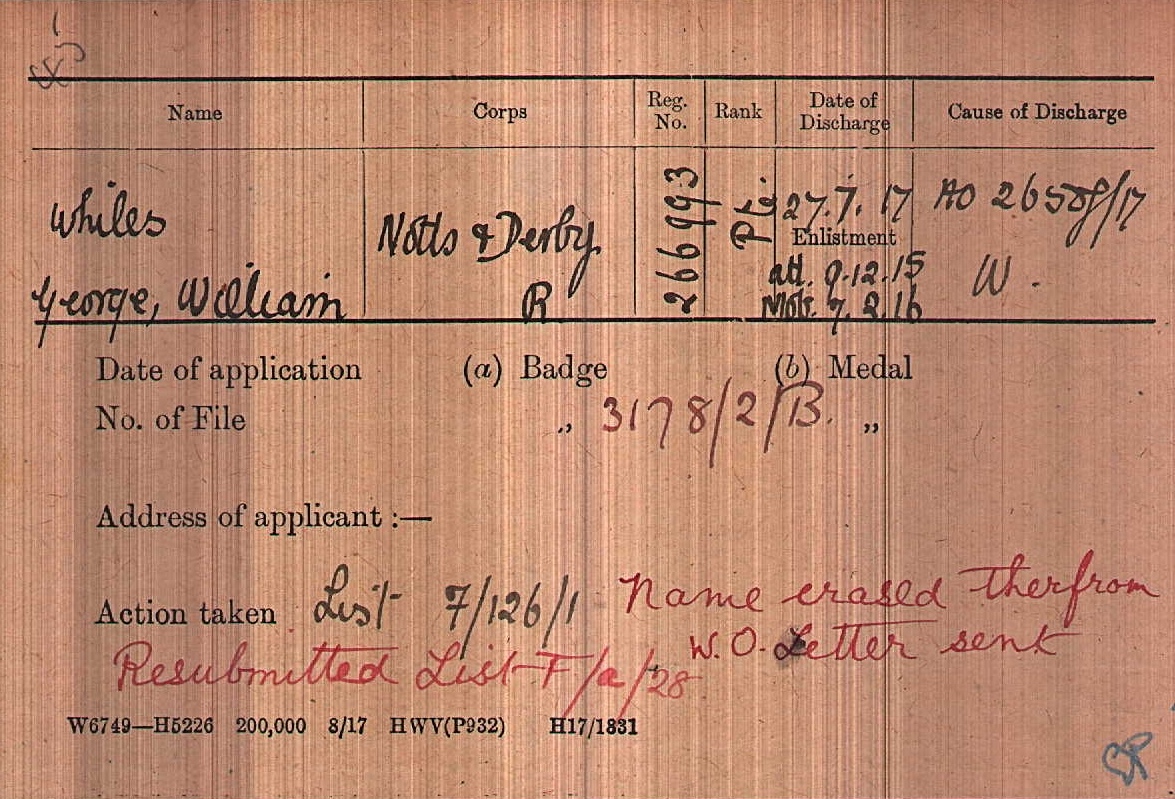 Name Corps Reg. No. Rank Date of Discharge Cause of Discharge
Whiles
George, William
Notts & Derby.
R
266993
Pte.
27.7.17
Enlistment
att. 9.12.15
Mob. 7.2.16
AO 265 /17
W.
Date of application (a) Badge (b) Medal
No. of File „ 3178/2/B. „
Address of applicant :—
Action taken List 7/126/1 Name erased therfrom
W.O. Letter sent
Resubmitted List F/a/28
W6749—H5226 200,000 8/17 HWV(P932) H17/1831